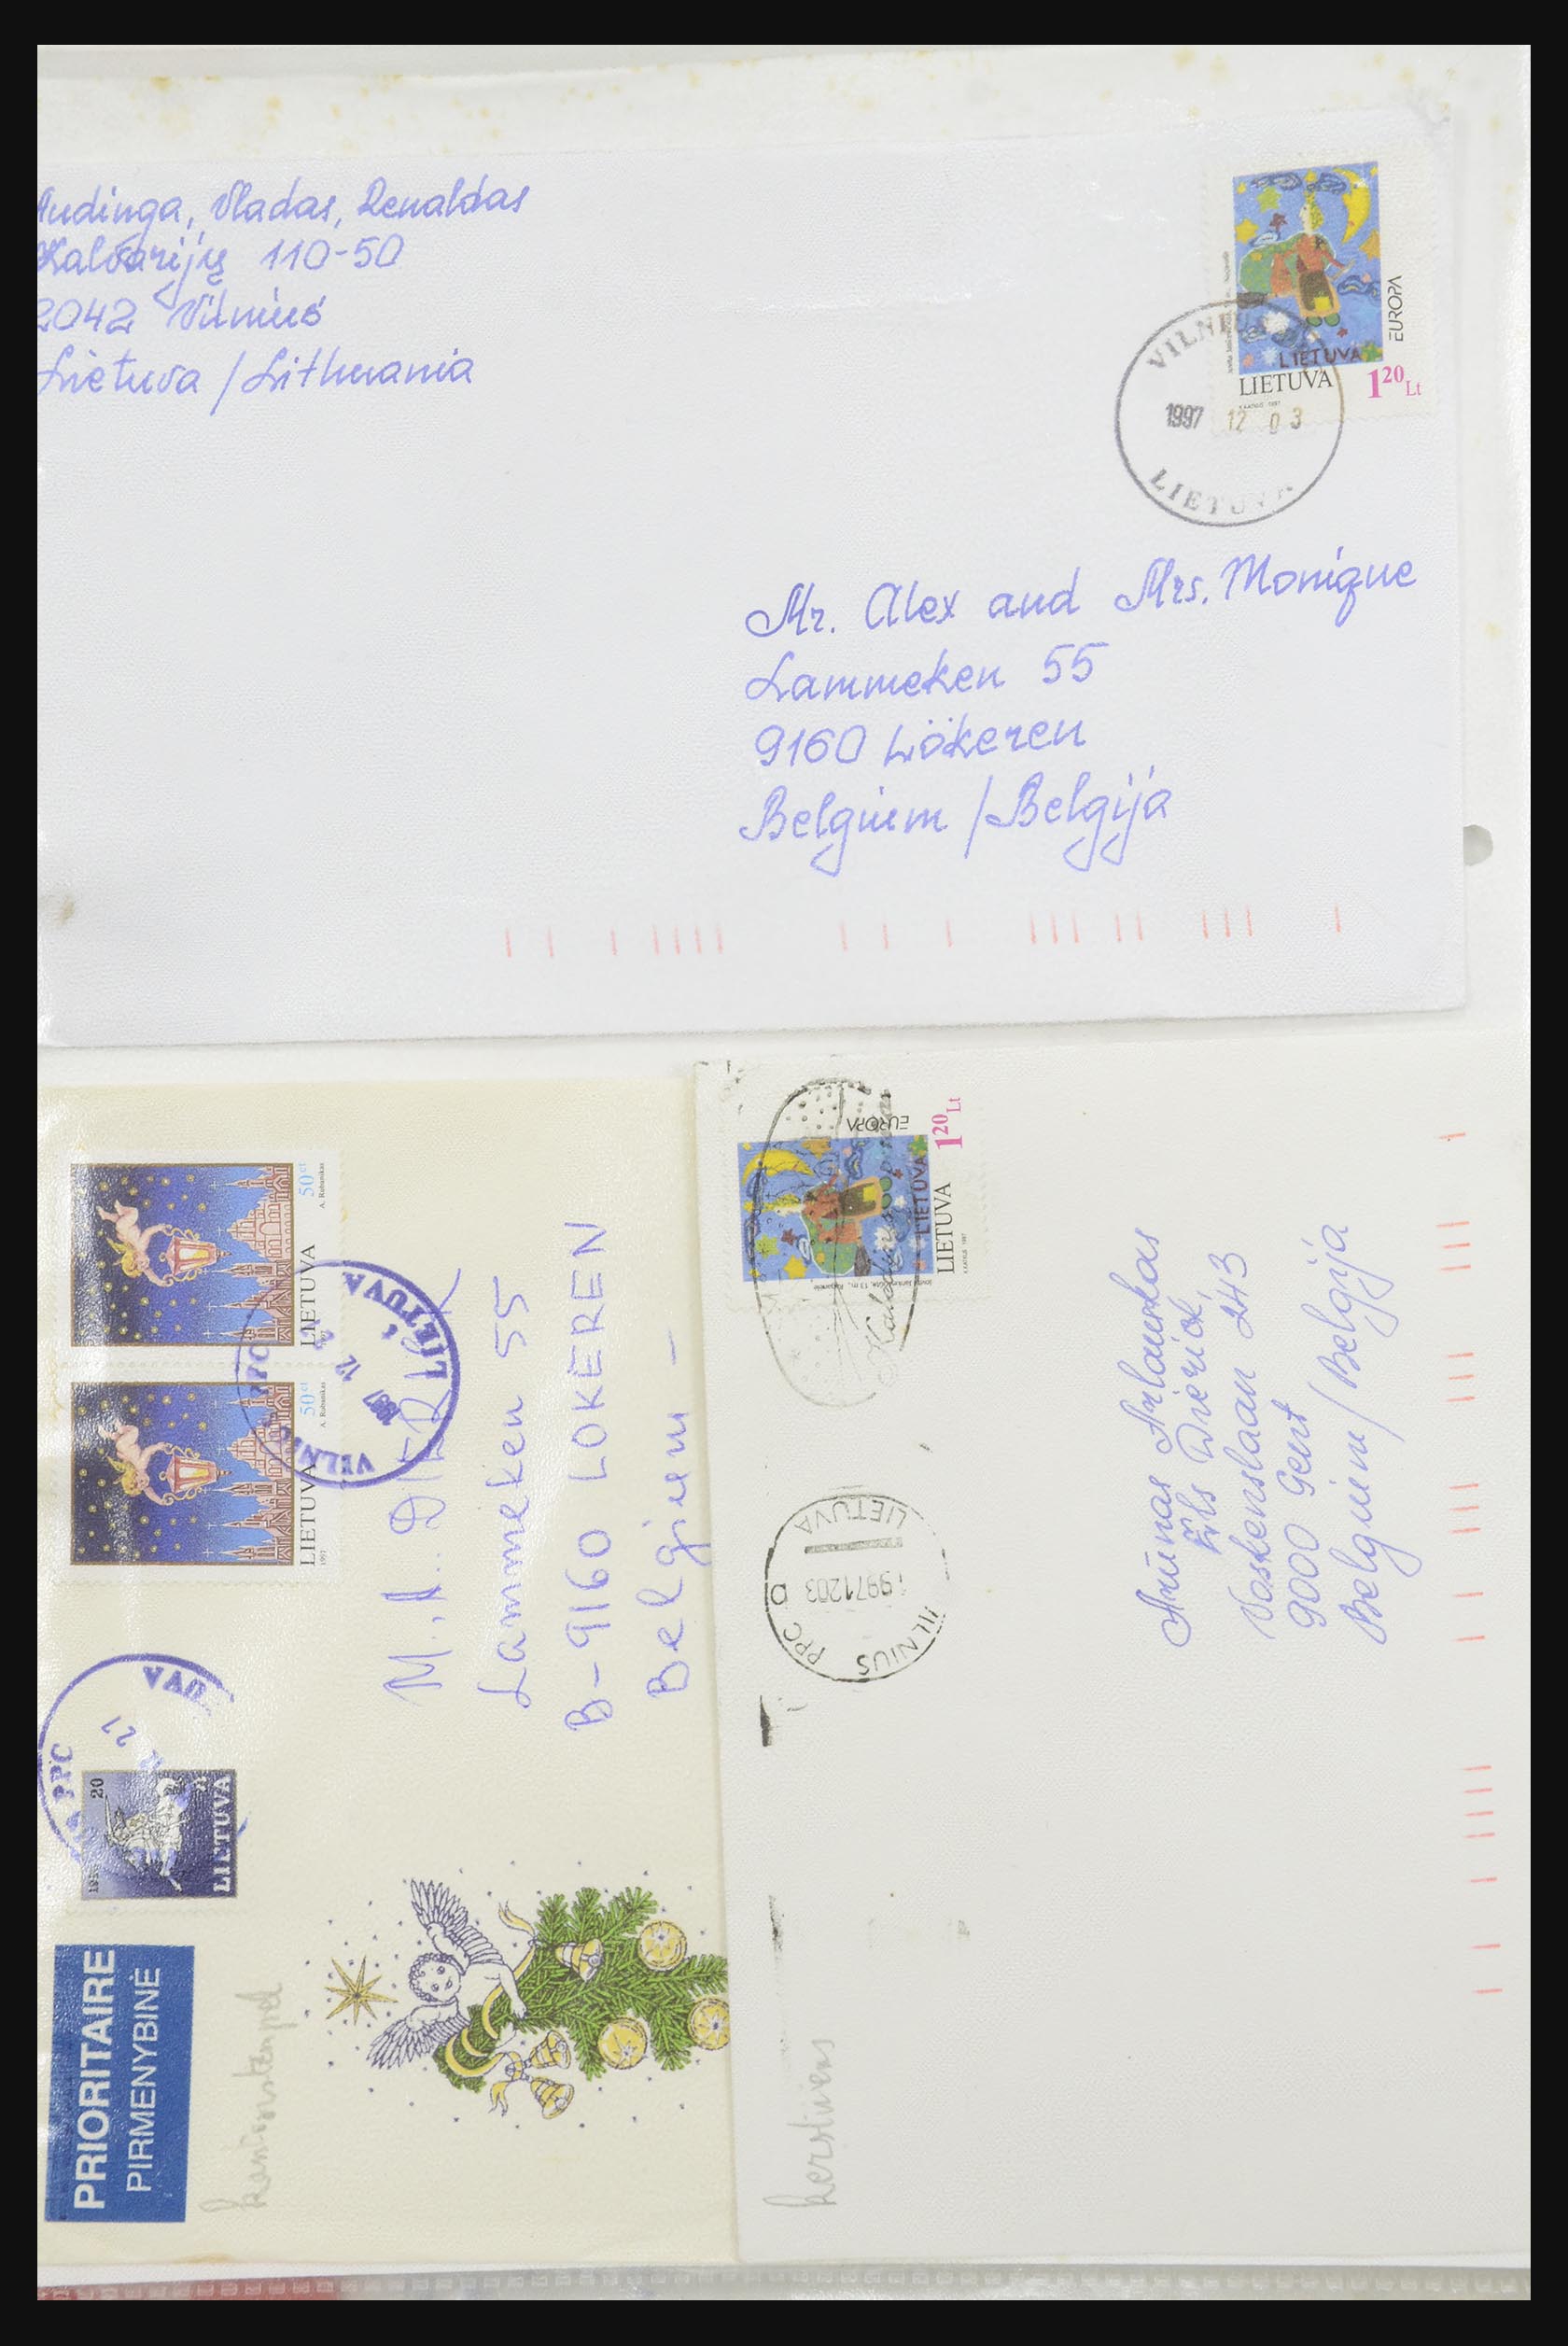 Audinga, Vladas, Renaldas
Kalvarijų 110-50
2042 Vilnius
Lietuva / Lithuania
EUROPA
LIETUVA
LIETUVA 1 20 Lt
VILNIUS
1997 12 03
LIETUVA
Mr. Alex and Mrs. Monique
Lammeken 55
9160 Lokeren
Belgium / Belgija
50 ct
A. Ratkevičienė
LIETUVA
50 ct
LIETUVA
1997
LIETUVA
1997 12
VILN
PPC
M. A. DIERICK
Lammeken 55
B-9160 LOKEREN
Belgium -
PPC
27
UVA
20
LIETUVA
PRIORITAIRE
PIRMENYBINĖ
EUROPA
LIETUVA
LIETUVA 1 20 Lt
LIETUVA
19971203
VILNIUS PPC D
Arūnas Arlauskas
p/s Dierick,
Voskenslaan 243
9000 Gent
Belgium / Belgija